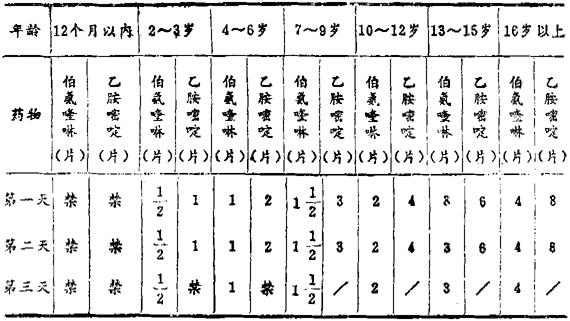 年龄 12个月以内 2~3岁 4~6岁 7~9岁 10~12岁 13~15岁 16岁以上
药物 伯氨喹啉(片) 乙胺嘧啶(片) 伯氨喹啉(片) 乙胺嘧啶(片) 伯氨喹啉(片) 乙胺嘧啶(片) 伯氨喹啉(片) 乙胺嘧啶(片) 伯氨喹啉(片) 乙胺嘧啶(片) 伯氨喹啉(片) 乙胺嘧啶(片) 伯氨喹啉(片) 乙胺嘧啶(片)
第一天 禁 禁 1/2 1 1 2 1 1/2 3 2 4 3 6 4 8
第二天 禁 禁 1/2 1 1 2 1 1/2 3 2 4 3 6 4 8
第三天 禁 禁 1/2 禁 1 禁 1 1/2 / 2 / 3 / 4 /